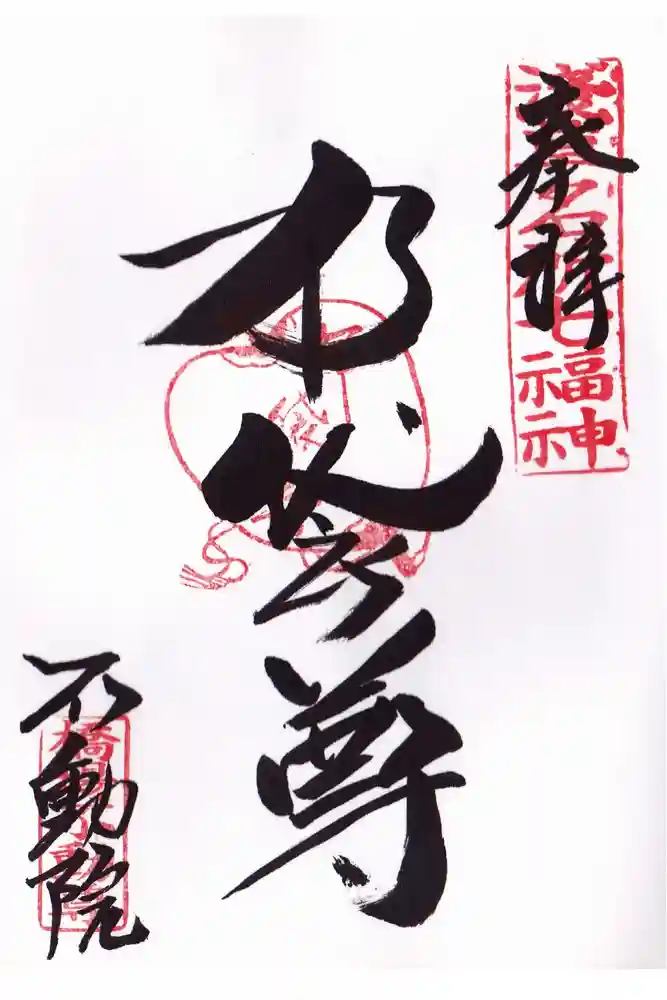 奉拝
七福神
布袋尊
不動院